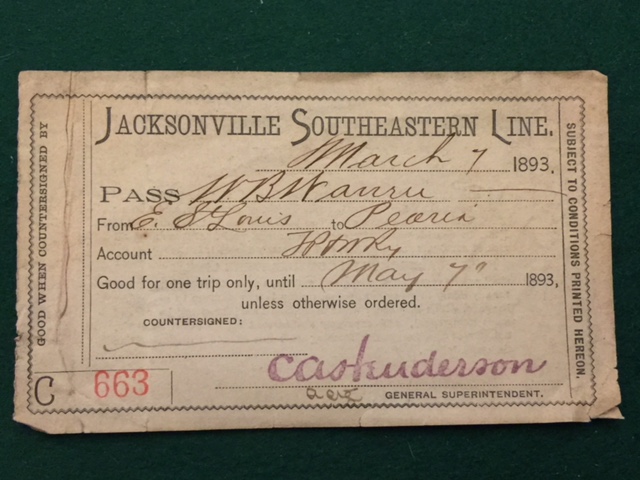 GOOD WHEN COUNTERSIGNED BY
JACKSONVILLE SOUTHEASTERN LINE.
March 7 1893.
PASS W B
From E. St Louis to Peoria
Account
Good for one trip only, until May 7" 1893,
unless otherwise ordered.
COUNTERSIGNED:
C 663
GENERAL SUPERINTENDENT.
SUBJECT TO CONDITIONS PRINTED HEREON.